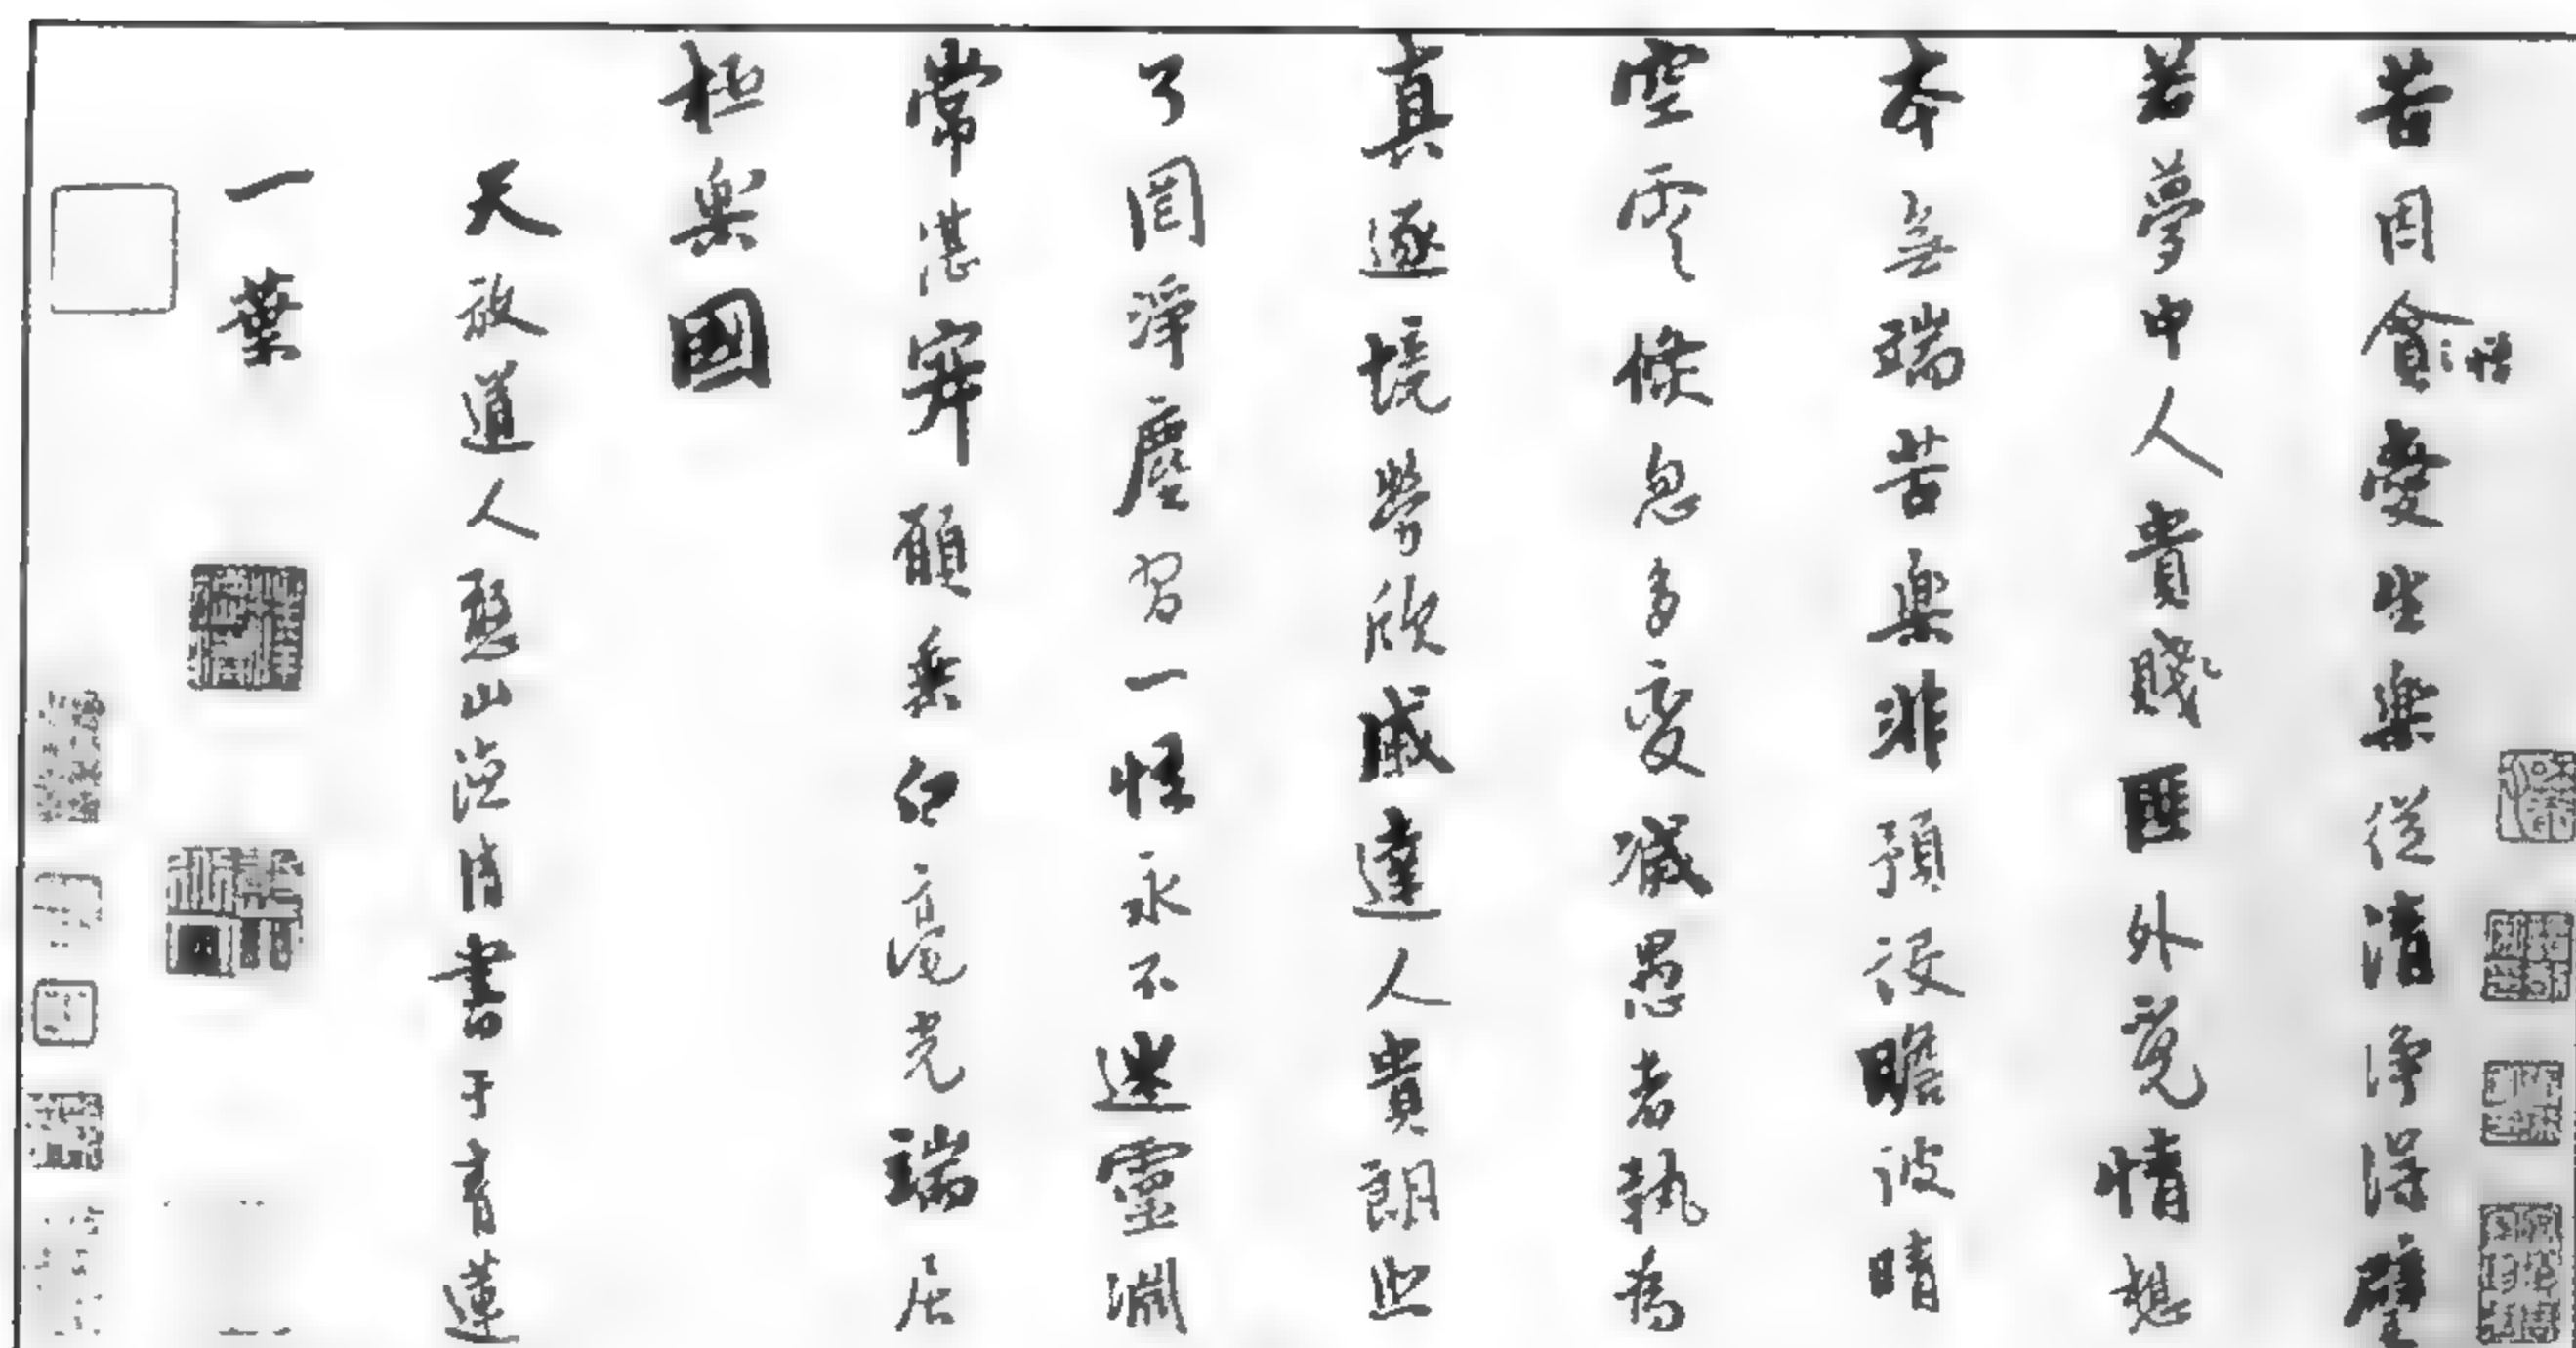 苦因貪愛生樂從淸淨得譬
若夢中人貴賤匪外覓情想
本無端苦樂非預設瞻彼晴
空雲倐忽多變滅愚者執為
真逐境勞欣戚達人貴朗照
了因淨塵習一悟永不迷靈淵
常湛寂願垂白毫光端居
極樂國
天放道人憨山德清書于青蓮
一葉